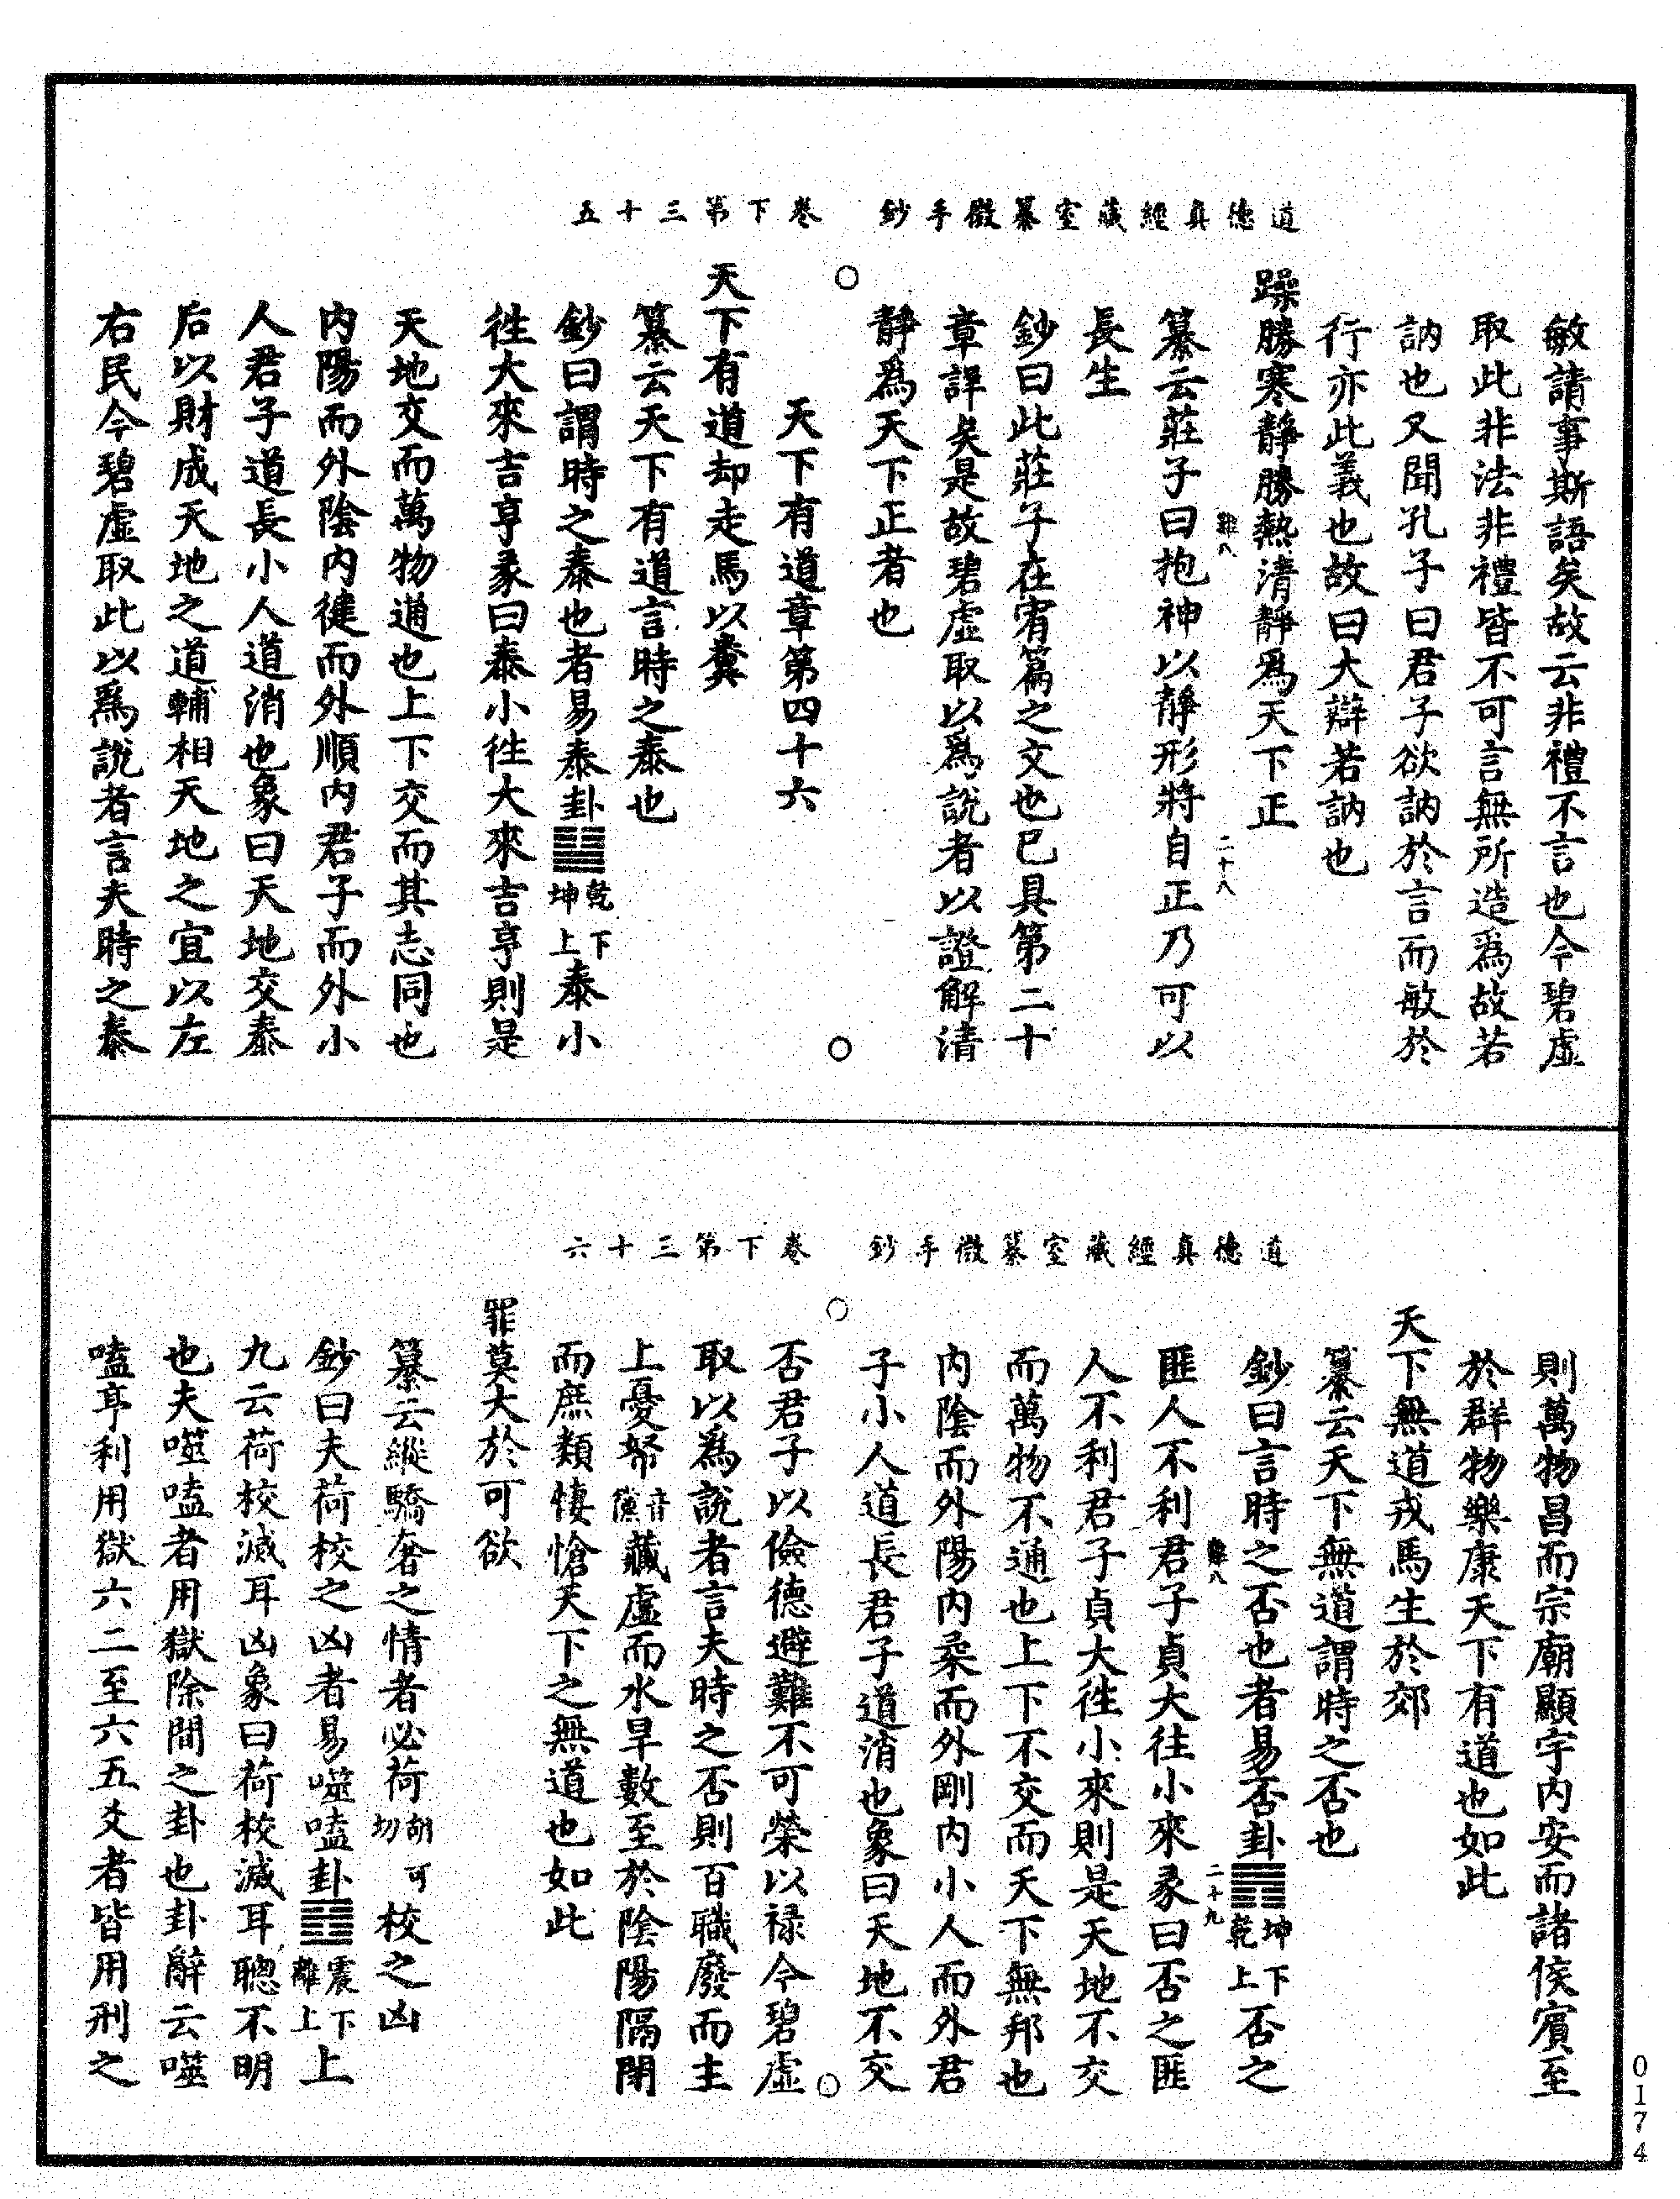 道德真經藏室纂微手鈔　卷下第三十五
敏請事斯語矣故云非禮不言也今碧虛
取此非法非禮皆不可言無所造爲故若
訥也又聞孔子曰君子欲訥於言而敏於
行亦此義也故曰大辯若訥也
躁勝寒靜勝熱清靜爲天下正
難八　二十八
纂云莊子曰抱神以靜形將自正乃可以
長生
鈔曰此莊子在宥篇之文也已具第二十
章詳矣是故碧虛取以爲說者以證解清
靜爲天下正者也
○　○
天下有道章第四十六
天下有道却走馬以糞
纂云天下有道言時之泰也
鈔曰謂時之泰也者易泰卦䷊乾下坤上泰小
往大來吉亨彖曰泰小往大來吉亨則是
天地交而萬物通也上下交而其志同也
內陽而外陰內健而外順內君子而外小
人君子道長小人道消也象曰天地交泰
后以財成天地之道輔相天地之宜以左
右民今碧虛取此以爲說者言夫時之泰
道德真經藏室纂微手鈔　卷下第三十六
則萬物昌而宗廟顯宇內安而諸侯賓至
於群物樂康天下有道也如此
天下無道戎馬生於郊
纂云天下無道謂時之否也
鈔曰言時之否也者易否卦䷋坤下乾上否之
難八　二十九
匪人不利君子貞大往小來彖曰否之匪
人不利君子貞大往小來則是天地不交
而萬物不通也上下不交而天下無邦也
內陰而外陽內柔而外剛內小人而外君
子小人道長君子道消也象曰天地不交
○　○
否君子以儉德避難不可榮以祿今碧虛
取以爲說者言夫時之否則百職廢而主
上憂帑音儻藏虛而水旱數至於陰陽隔閉
而庶類悽愴天下之無道也如此
罪莫大於可欲
纂云縱驕奢之情者必荷胡可切校之凶
鈔曰夫荷校之凶者易噬嗑卦䷔震下離上上
九云荷校滅耳凶象曰荷校滅耳聰不明
也夫噬嗑者用獄除間之卦也卦辭云噬
嗑亨利用獄六二至六五爻者皆用刑之
0174